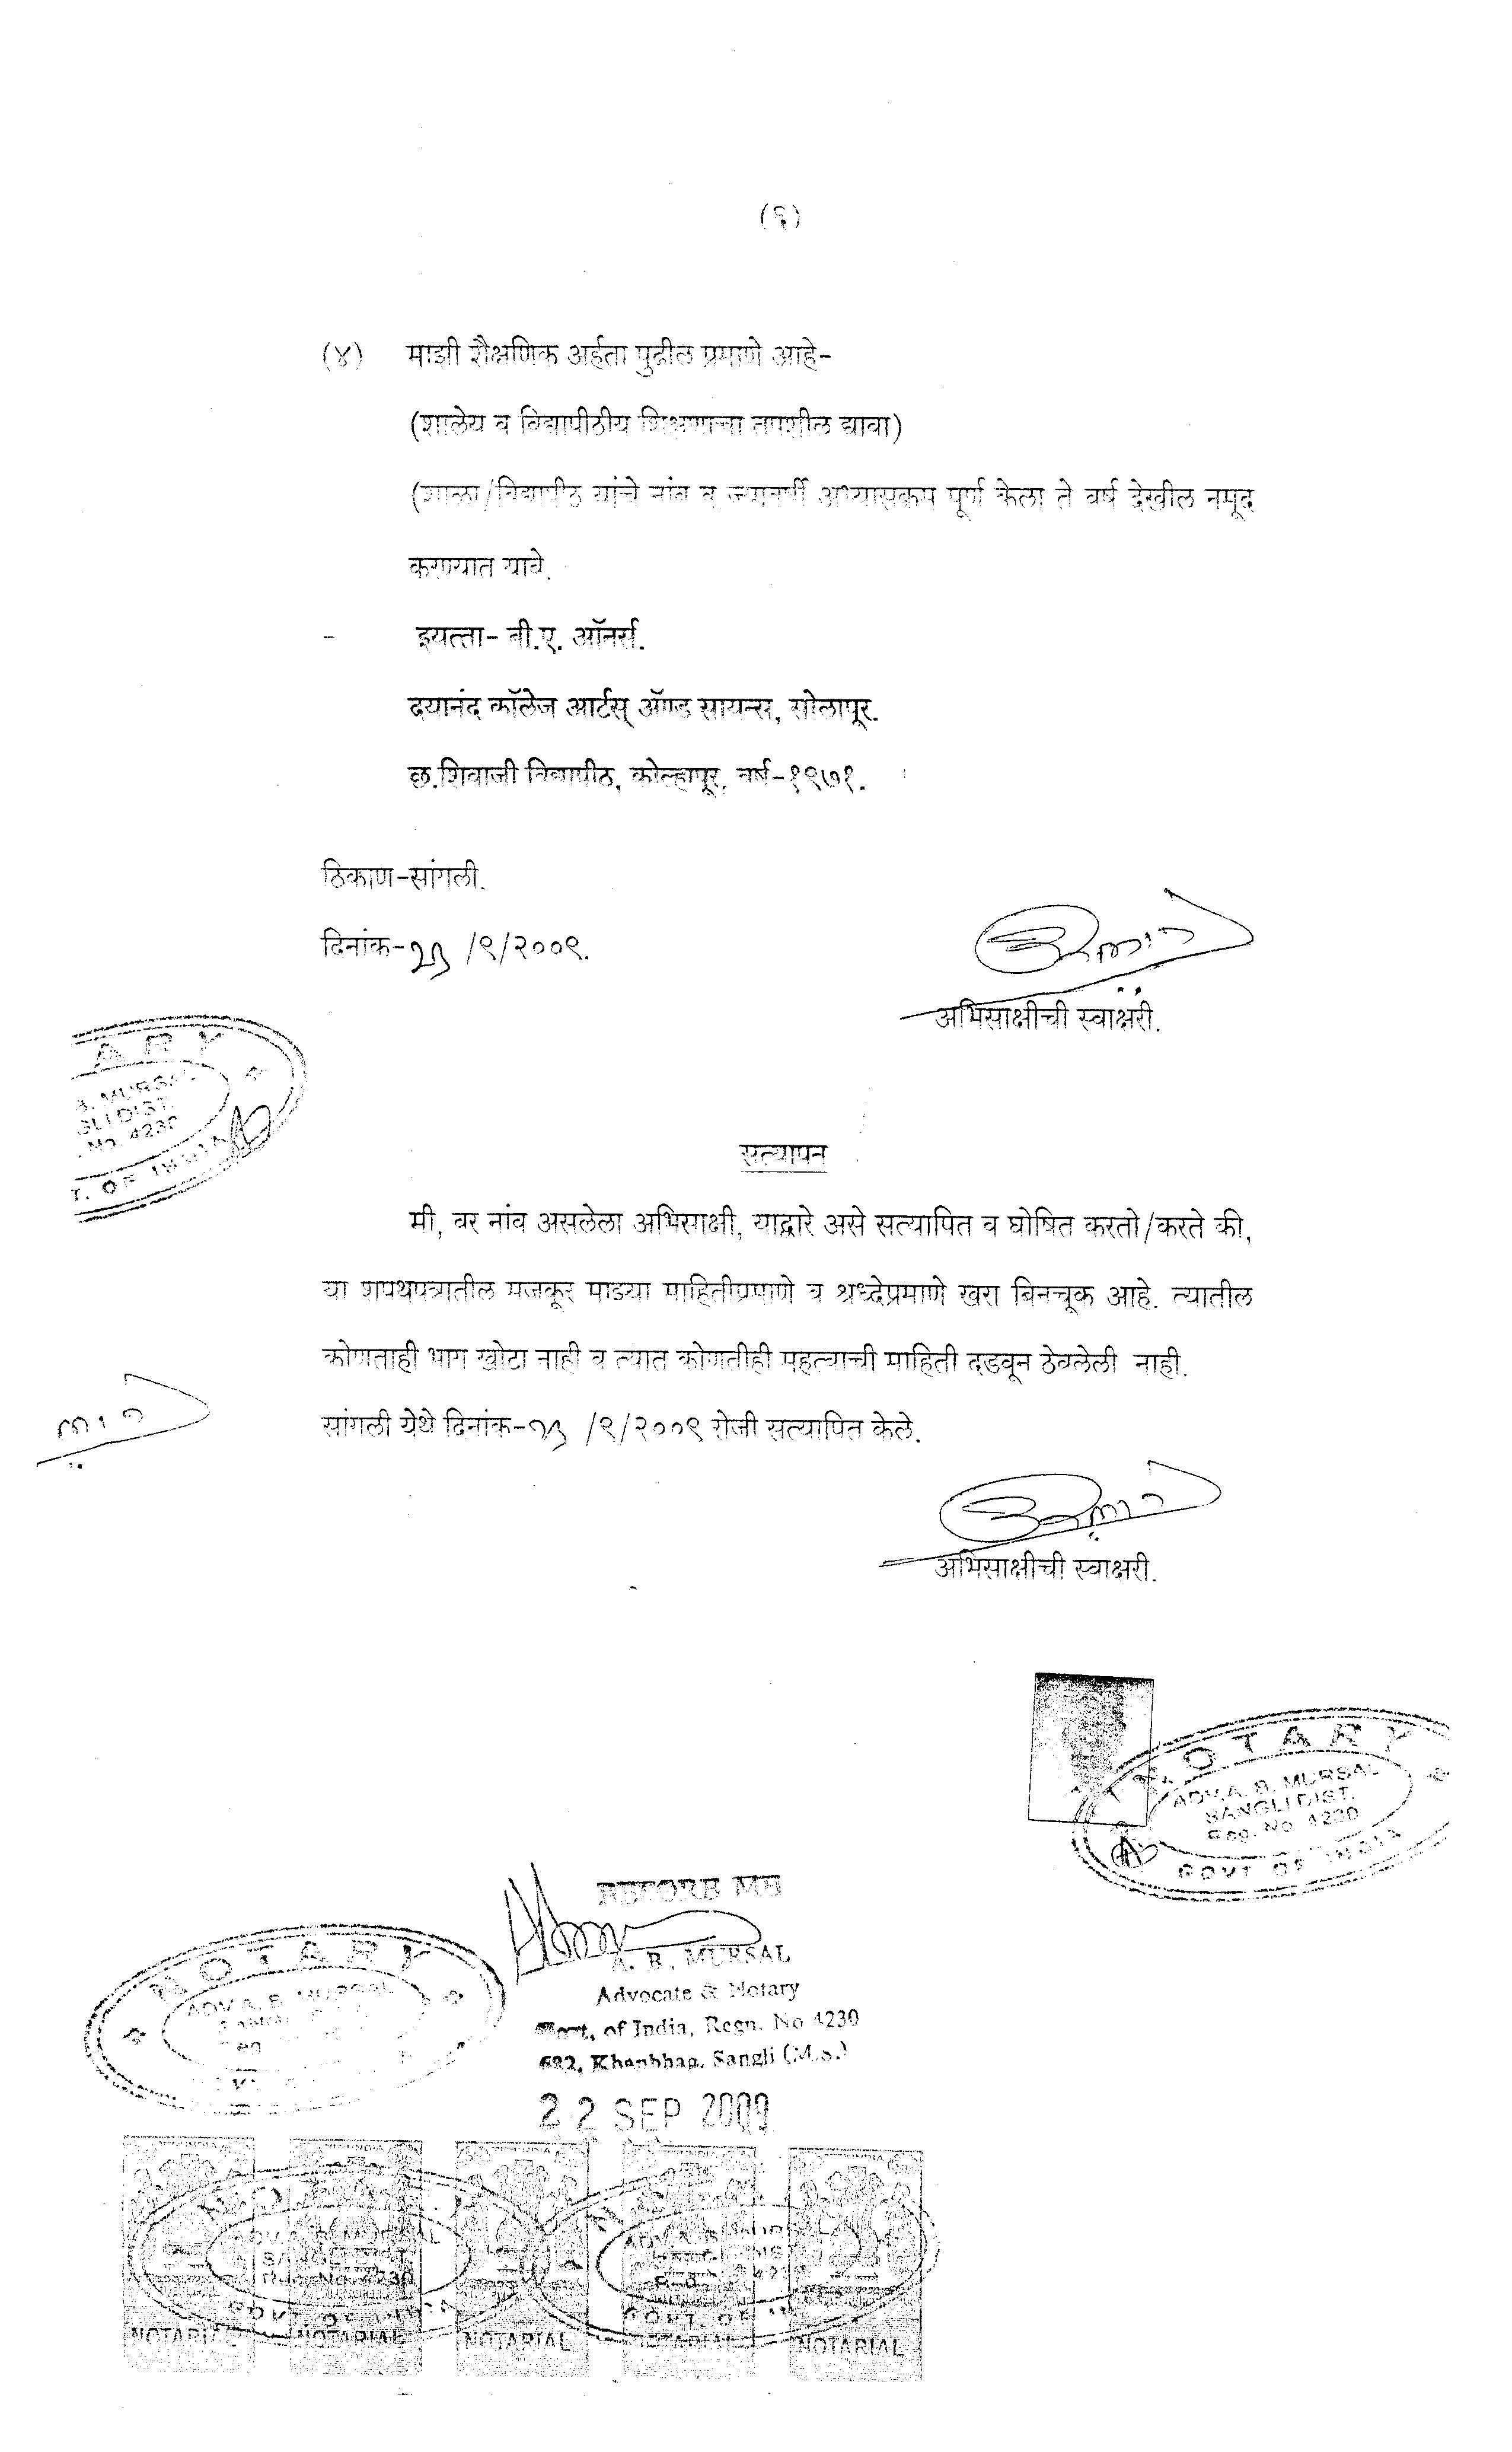 (६)
(४) माझी शैक्षणिक अर्हता पुढील प्रमाणे आहे-
(शालेय व विद्यापीठीय शिक्षणाचा तपशील द्यावा)
(शाळा/विद्यापीठ यांचे नांव व ज्यावर्षी अभ्यासक्रम पूर्ण केला ते वर्ष देखील नमूद
करण्यात यावे.
- इयत्ता- बी.ए. ऑनर्स.
दयानंद कॉलेज आर्टस् ॲण्ड सायन्स, सोलापूर.
छ.शिवाजी विद्यापीठ, कोल्हापूर. वर्ष-१९७१.
ठिकाण-सांगली.
दिनांक- /९/२००९.
अभिसाक्षीची स्वाक्षरी.
ARY
B. MURSAL
GLI DIST.
No. 4230
T. OF INDIA
सत्यापन
मी, वर नांव असलेला अभिसाक्षी, याद्वारे असे सत्यापित व घोषित करतो/करते की,
या शपथपत्रातील मजकूर माझ्या माहितीप्रमाणे व श्रध्देप्रमाणे खरा बिनचूक आहे. त्यातील
कोणताही भाग खोटा नाही व त्यात कोणतीही महत्वाची माहिती दडवून ठेवलेली नाही.
सांगली येथे दिनांक- /९/२००९ रोजी सत्यापित केले.
अभिसाक्षीची स्वाक्षरी.
NOTARY
ADV. A. B. MURSAL
SANGLI DIST.
Reg. No 4230
GOVT OF INDIA
BEFORE ME
A. B. MURSAL
Advocate & Notary
Govt, of India, Regn. No 4230
682, Khanbhag, Sangli (M.S.)
NOTARY
ADV. A. B. MURSAL
22 SEP 2009
SANGLI DIST.
Reg. No. 4230
GOVT. OF
GOVT. OF
NOTARIAL NOTARIAL NOTARIAL NOTARIAL NOTARIAL